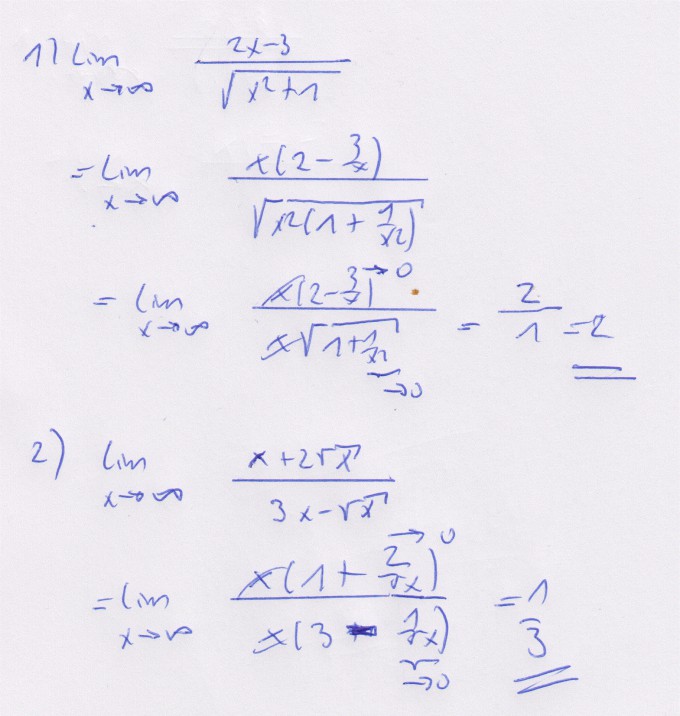 1) lim x→∞ (2x-3)/√(x²+1)
= lim x→∞ x(2-3/x)/√(x²(1+1/x²))
= lim x→∞ x(2-3/x)→0 / x√(1+1/x²)→0 = 2/1 = 2
2) lim x→∞ (x+2√x)/(3x-√x)
= lim x→∞ x(1+2/√x)→0 / x(3-1/√x)→0 = 1/3